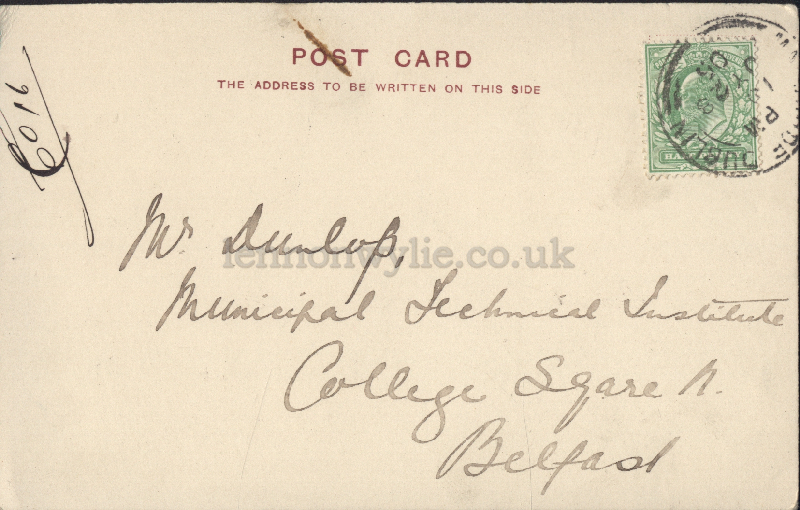 POST CARD
THE ADDRESS TO BE WRITTEN ON THIS SIDE
DUBLIN
PM
6016
Mr Dunlop,
lennonwylie.co.uk
Municipal Technical Institute
College Sqare N.
Belfast